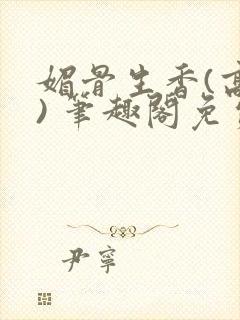 媚骨生香(高
)笔趣阁免
尹寧